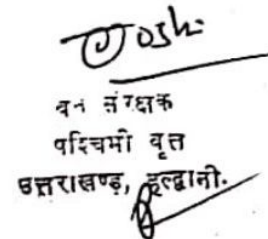 Joshi
वन संरक्षक
पश्चिमी वृत्त
उत्तराखण्ड, हल्द्वानी.